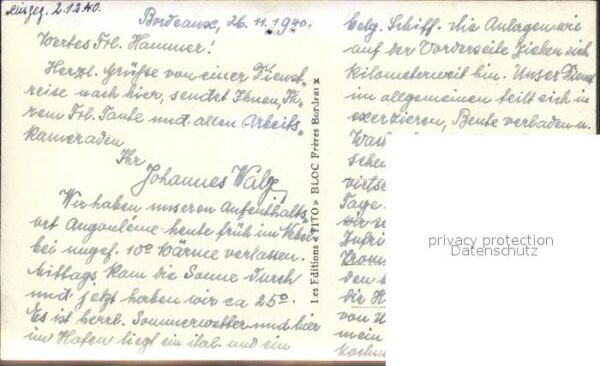 eingeg. 2.12.40.
Bordeaux, 26.11.1940.
Wertes Frl. Hammer!
Herzl. Grüße von einer Dienst-
reise nach hier, sendet Ihnen, Ih-
rem Frl. Tante und allen Arbeits-
kameraden
Ihr
Johannes Walz
Wir haben unseren Aufenthalts-
ort Angoulême heute früh im Nebel
bei ungef. 10° Wärme verlassen.
Mittags kam die Sonne durch
und jetzt haben wir ca 25°.
Es ist herrl. Sommerwetter und hier
im Hafen liegt ein ital. und ein
Les Editions « TITO » BLOC Frères Bordeaux
Schiff. Die Anlagen wie
auf der Vorderseite ziehen sich
kilometerweit hin. Unser Dienst
im allgemeinen teilt sich in
exerzieren, Beute verladen u.
Tage.
den
dir
von
mein
privacy protection
Datenschutz